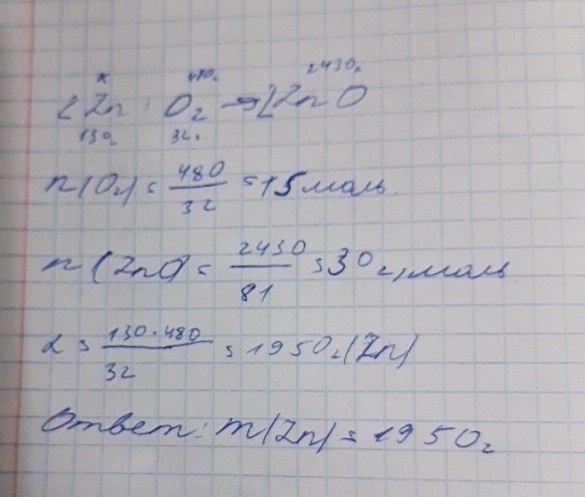 x 480г 2430г
2Zn + O₂ → 2ZnO
130г 32г
n(O₂) = 480/32 = 15 моль
n(ZnO) = 2430/81 = 30 г/моль
x = 130·480/32 = 1950г(Zn)
Ответ: m(Zn) = 1950г